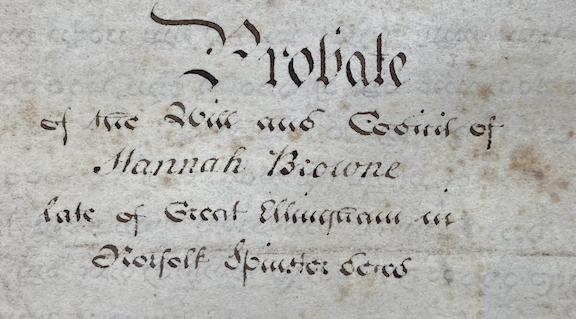 Probate
of the Will and Codicil of
Hannah Browne
late of Great Ellingham in
Norfolk Spinster decd